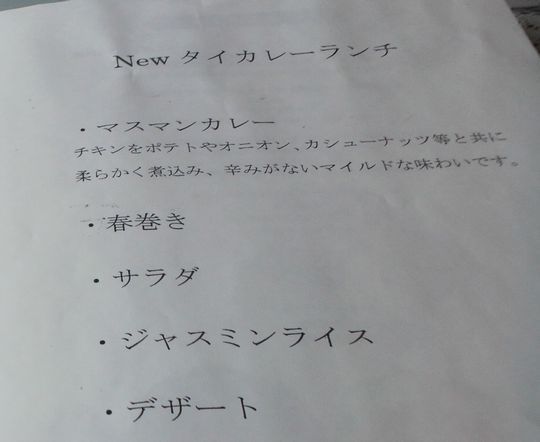 New タイカレーランチ
・マスマンカレー
チキンをポテトやオニオン、カシューナッツ等と共に
柔らかく煮込み、辛みがないマイルドな味わいです。
・春巻き
・サラダ
・ジャスミンライス
・デザート